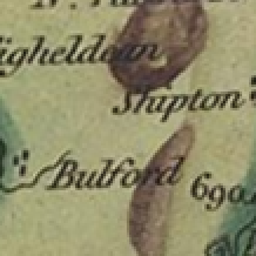 igheldean
Shipton
Bulford 690